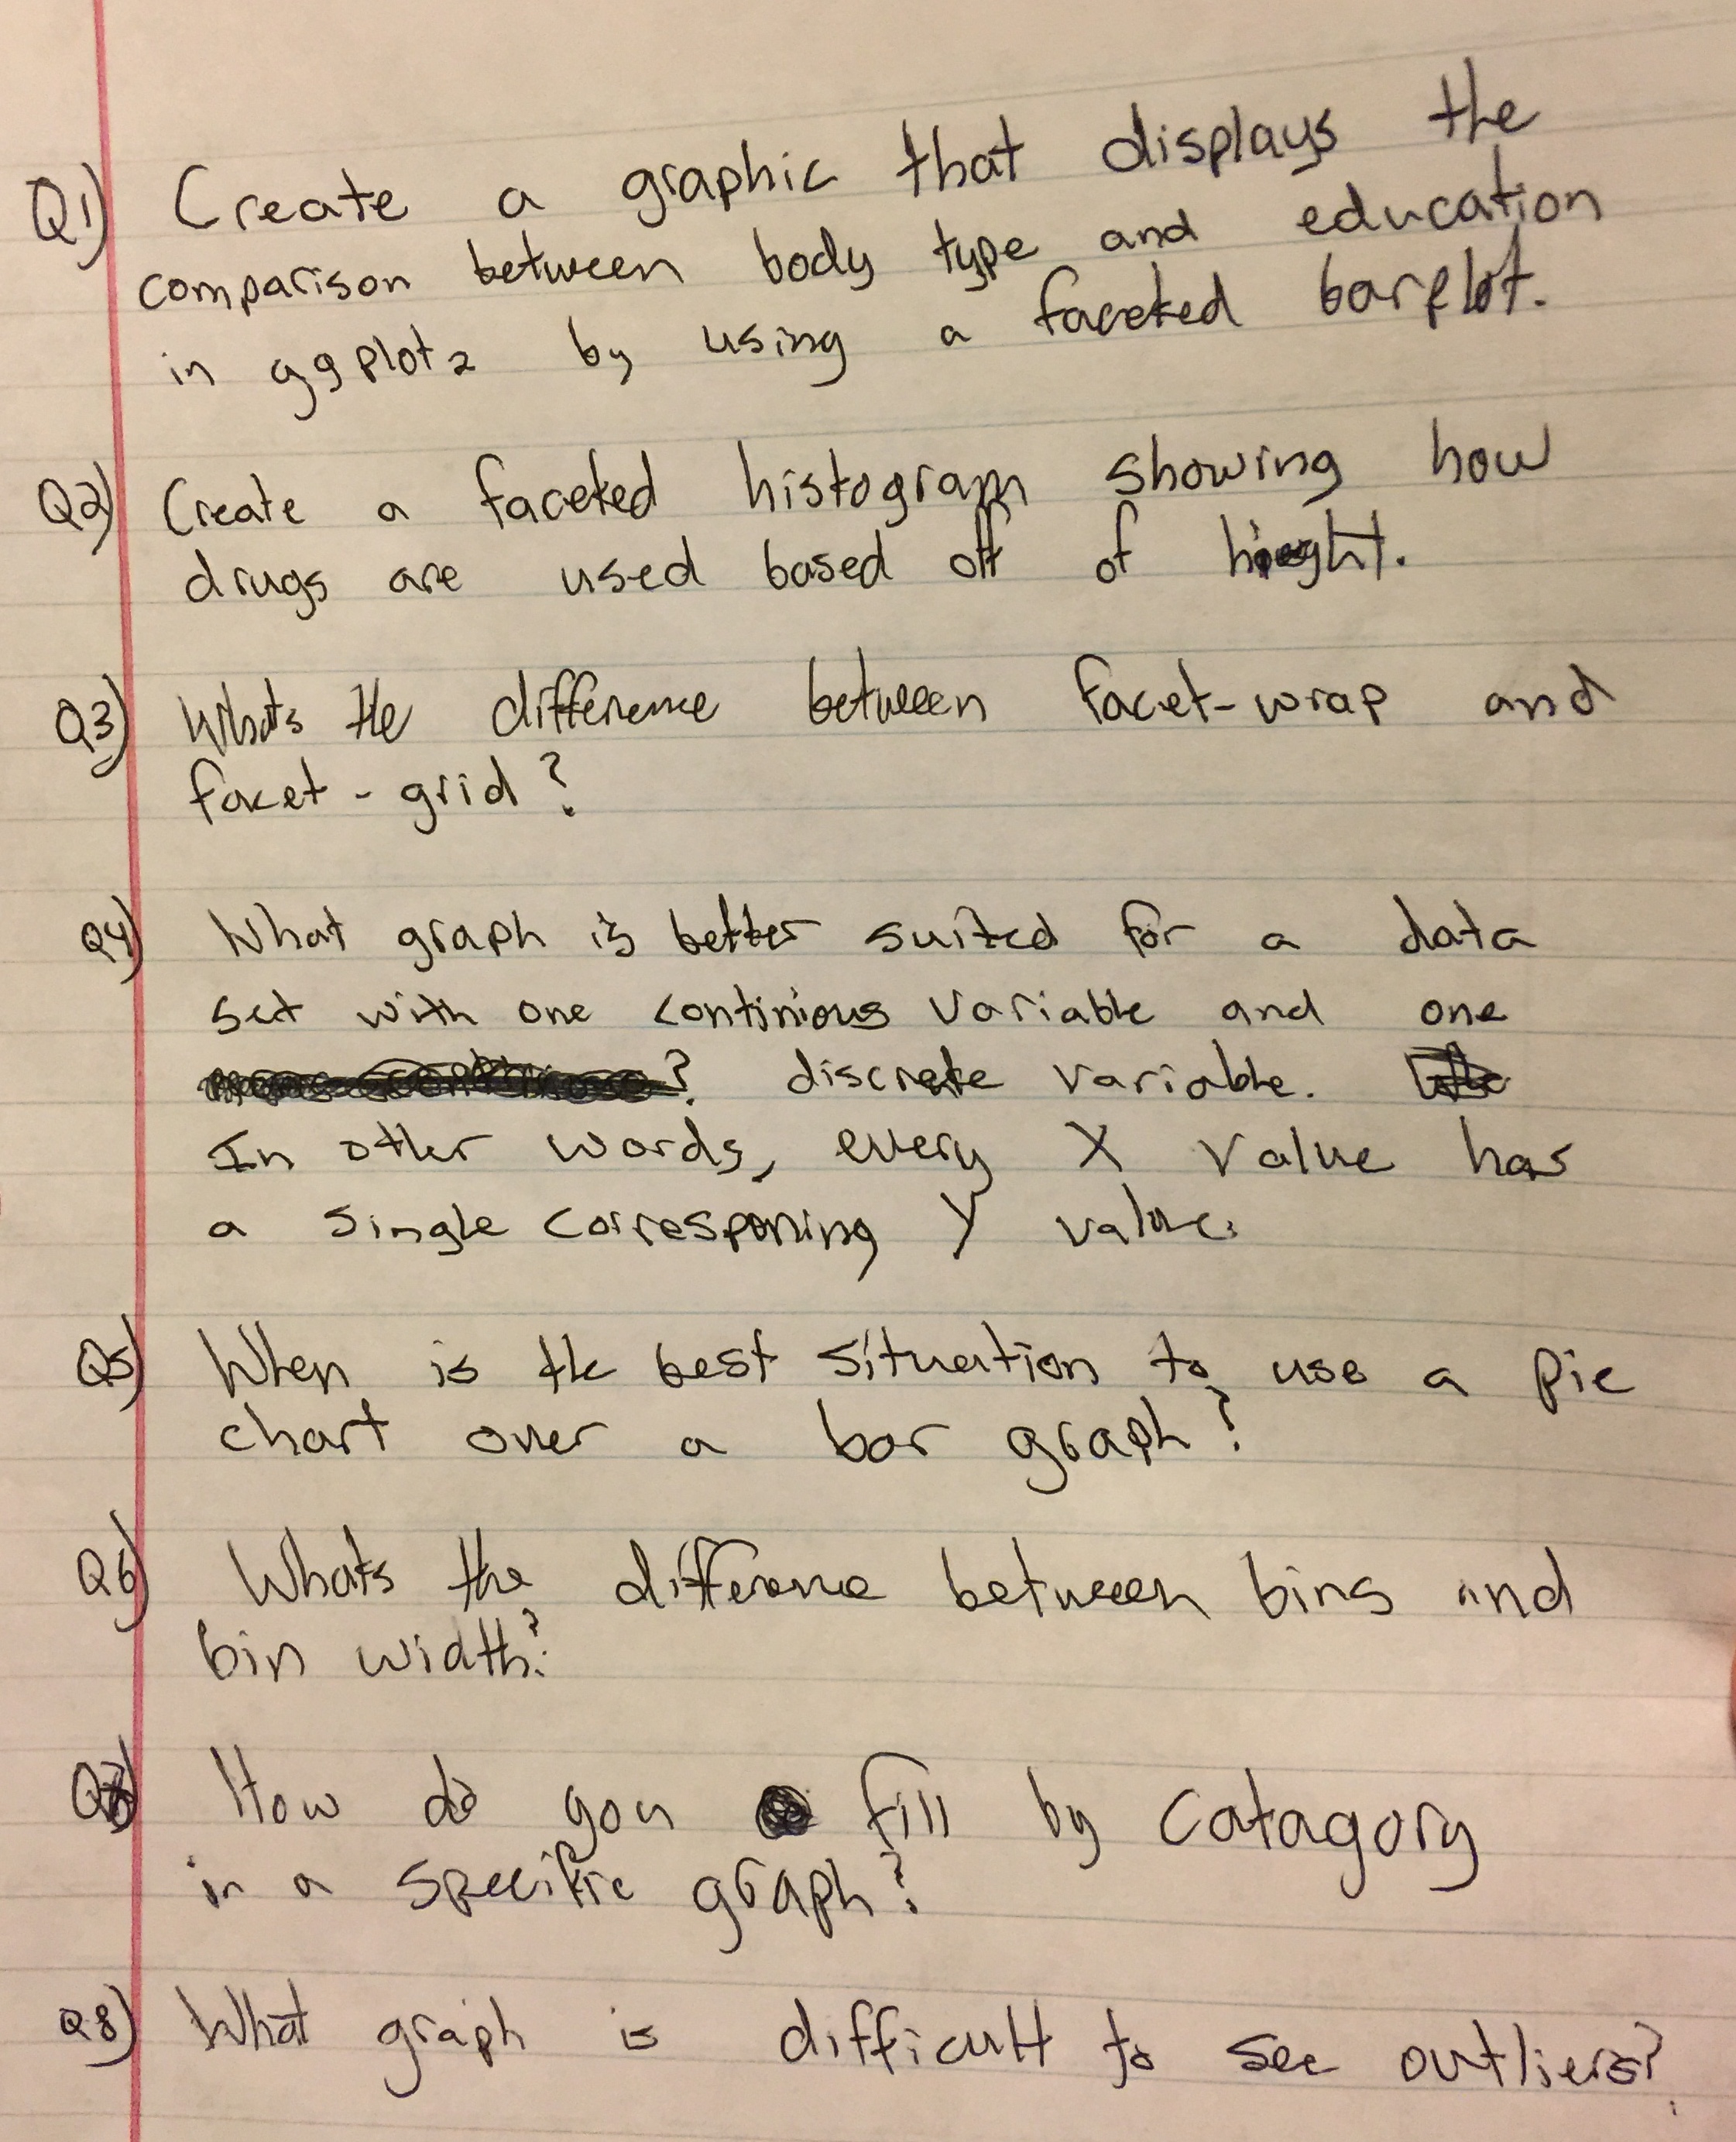 Q1) Create a graphic that displays the
comparison between body type and education
in ggplot2 by using a faceted barplot.
Q2) Create a faceted histogram showing how
drugs are used based off of height.
Q3) Whats the difference between facet-wrap and
facet-grid?
Q4) What graph is better suited for a data
set with one continious variable and one
? discrete variable.
In other words, every X value has
a single corresponing Y value.
Q5) When is the best situation to use a pie
chart over a bar graph?
Q6) Whats the difference between bins and
bin width?
Q7) How do you fill by catagory
in a specific graph?
Q8) What graph is difficult to see outliers?